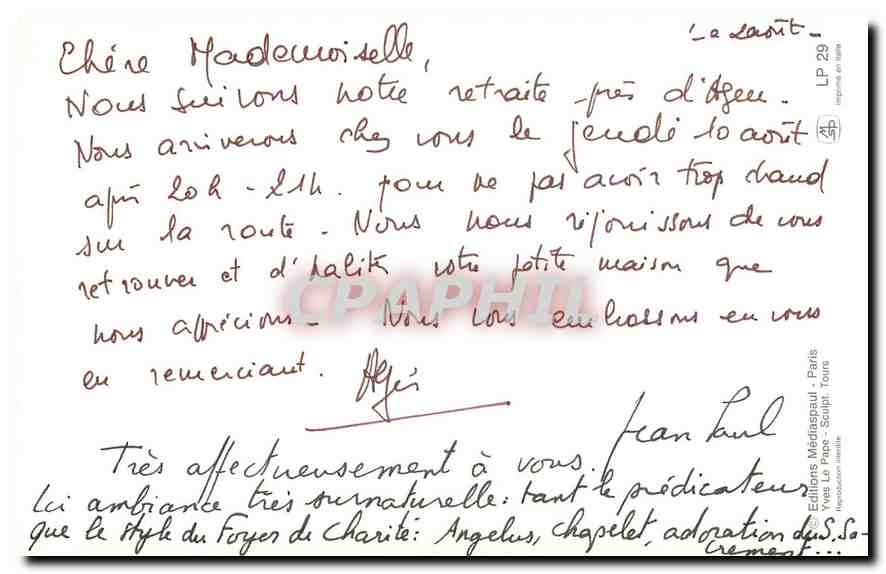 Le 2 août -
Chère Mademoiselle,
Nous suivons notre retraite près d'Agen.
Nous arriverons chez vous le jeudi 10 août
après 20h - 21h. pour ne pas avoir trop chaud
sur la route - Nous nous réjouissons de vous
retrouver et d'habiter votre petite maison que
nous apprécions - Nous vous embrassons en vous
en remerciant. Agnès
Jean Paul
Très affectueusement à vous.
Ici ambiance très surnaturelle : tant le prédicateur
que le style du Foyer de Charité : Angelus, chapelet, adoration du S. Sa-
crement...
LP 29
imprimé en Italie
© Editions Médiaspaul - Paris
Yves Le Pape - Sculpt. Tours
Reproduction interdite
CPAPHIL